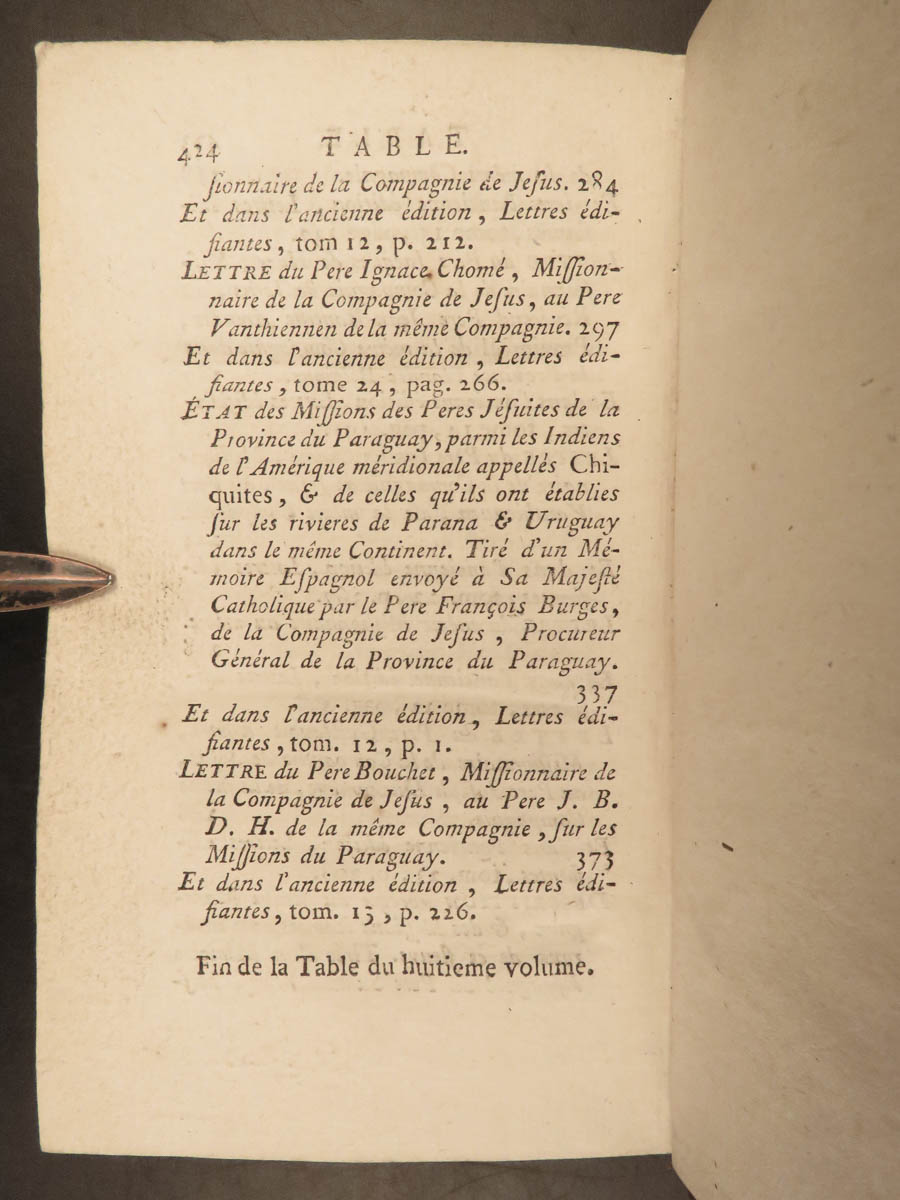 424 TABLE.
ſionnaire de la Compagnie de Jeſus. 284
Et dans l'ancienne édition, Lettres édi-
fiantes, tom 12, p. 212.
LETTRE du Pere Ignace Chomé, Miſſion-
naire de la Compagnie de Jeſus, au Pere
Vanthiennen de la même Compagnie. 297
Et dans l'ancienne édition, Lettres édi-
fiantes, tome 24, pag. 266.
ÉTAT des Miſſions des Peres Jéſuites de la
Province du Paraguay, parmi les Indiens
de l'Amérique méridionale appellés Chi-
quites, & de celles qu'ils ont établies
ſur les rivieres de Parana & Uruguay
dans le même Continent. Tiré d'un Mé-
moire Eſpagnol envoyé à Sa Majeſté
Catholique par le Pere François Burges,
de la Compagnie de Jeſus, Procureur
Général de la Province du Paraguay.
337
Et dans l'ancienne édition, Lettres édi-
fiantes, tom. 12, p. 1.
LETTRE du Pere Bouchet, Miſſionnaire de
la Compagnie de Jeſus, au Pere J. B.
D. H. de la même Compagnie, ſur les
Miſſions du Paraguay. 373
Et dans l'ancienne édition, Lettres édi-
fiantes, tom. 13, p. 226.
Fin de la Table du huitieme volume.